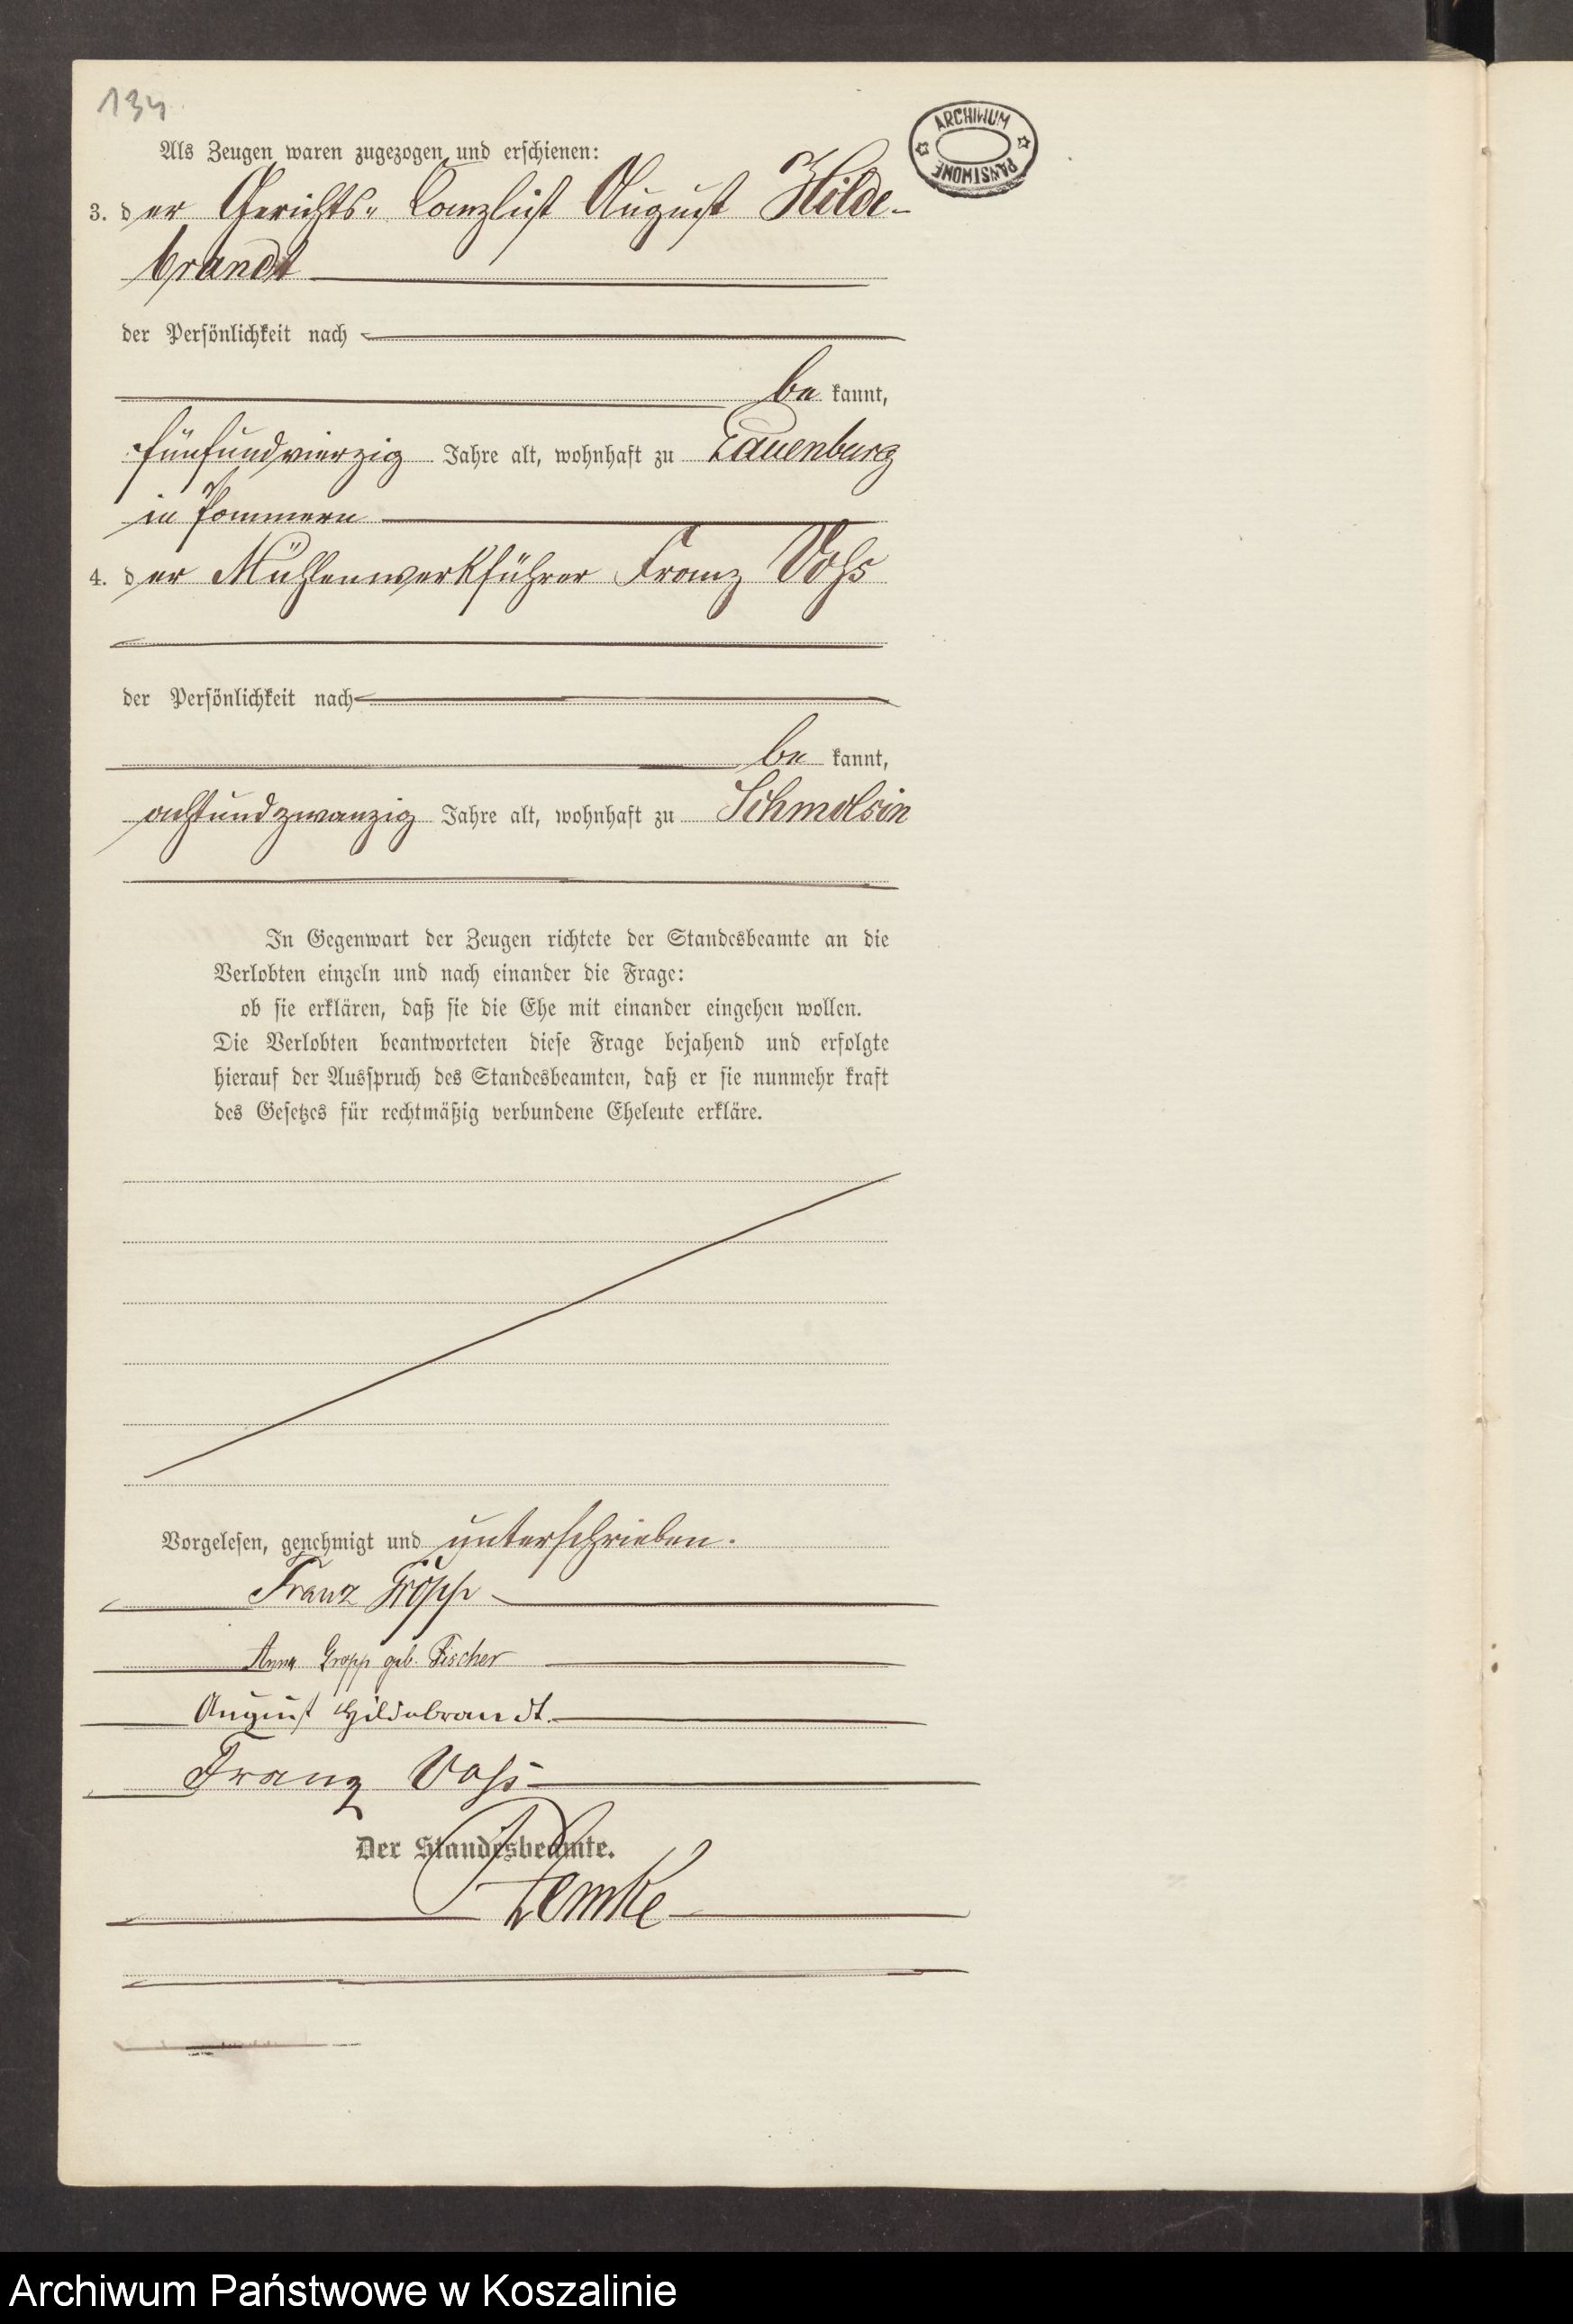 134
ARCHIWUM PAŃSTWOWE
Als Zeugen waren zugezogen und erschienen:
3. der Gerichts-Canzlist August Hilde-
brandt
der Persönlichkeit nach
be kannt,
fünfundvierzig Jahre alt, wohnhaft zu Lauenburg
in Pommern
4. der Mühlenwerkführer Franz Vohs
der Persönlichkeit nach
be kannt,
achtundzwanzig Jahre alt, wohnhaft zu Schmolsin
In Gegenwart der Zeugen richtete der Standesbeamte an die
Verlobten einzeln und nach einander die Frage:
ob sie erklären, daß sie die Ehe mit einander eingehen wollen.
Die Verlobten beantworteten diese Frage bejahend und erfolgte
hierauf der Ausspruch des Standesbeamten, daß er sie nunmehr kraft
des Gesetzes für rechtmäßig verbundene Eheleute erkläre.
Vorgelesen, genehmigt und unterschrieben.
Franz Gropp
Anna Gropp geb. Fischer
August Hildebrandt.
Franz Vohs
Der Standesbeamte.
Lemke
Archiwum Państwowe w Koszalinie